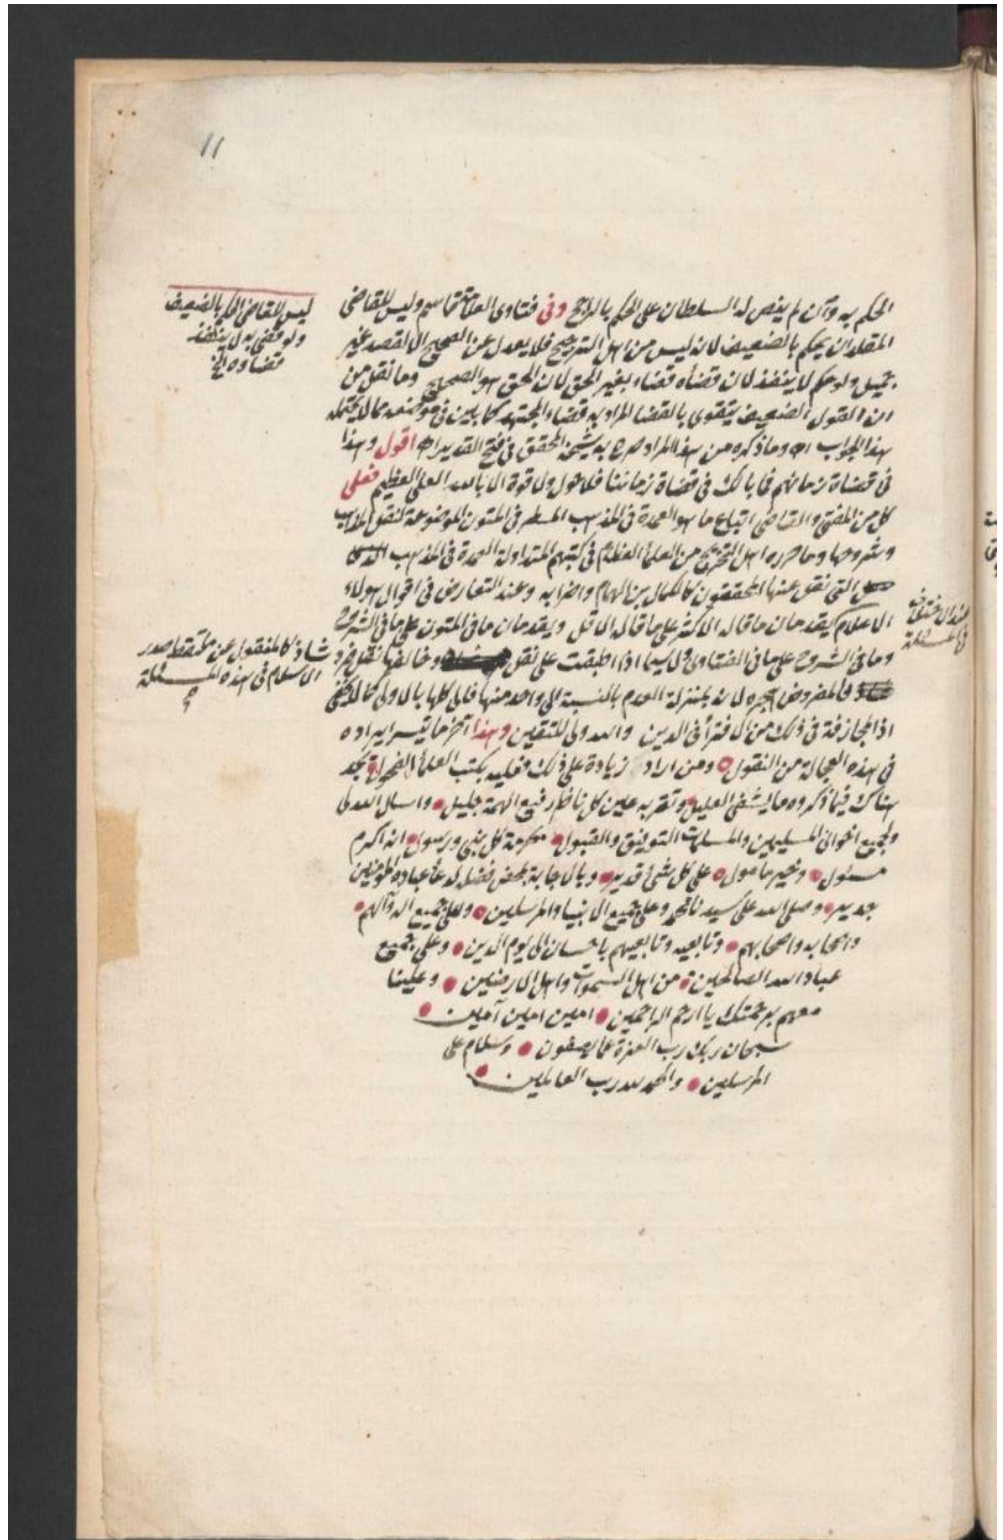 11
الحكم به وان لم ينص له السلطان على الحكم بالراجح وفى فتاوى العلامة قاسم وليس للقاضى
المقلد ان يحكم بالضعيف لانه ليس من اهل الترجيح فلا يعدل عن الصحيح الا لقصد غير
جميل ولو حكم لا ينفذ لان قضاه قضاء بغير الحق لان الحق هو الصحيح وما نقل من
ان القول الضعيف يتقوى بالقضا المراد به قضاء المجتهد كما بين فى موضعه مما لا يحتمله
هذا الجواب اه وما ذكره من هذا المراد صرح به شيخه المحقق فى فتح القدير اه اقول وهذا
فى قضاة زمانهم فما بالك فى قضاة زماننا فلا حول ولا قوة الا بالله العلى العظيم فعلى
كل من المفتى والقاضى اتباع ما هو العمدة فى المذهب المسطر فى المتون الموضوعة لنقل المذهب
وشروحها وما حرره اهل التخريج من العلماء العظام فى كتبهم المتداولة العمدة فى المذهب
التى نقل عنها المحققون كالكمال بن الهمام واضرابه وعند التعارض فى اقوال هولاء
الاعلام يقدمان ما قاله الاكثر على ما قاله الاقل ويقدمان ما فى المتون على ما فى الشروح
وما فى الشروح على ما فى الفتاوى ولا سيما اذا اطبقت على نقل وخالفها نقل فرد
فالمفروض هجره لانه بمنزلة العدم بالنسبة الى واحد منها فالى كلها بالاولى كما لا يخفى
اذ المجازفة فى ذلك من الافترا فى الدين والله ولى المتقين وهذا آخر ما تيسر ايراده
فى هذه العجالة من النقول ومن اراد زيادة على ذلك فعليه بكتب العلماء الفحول تجد
هناك فيما ذكروه ما يشفى العليل وتقر به عين كل ناظر رفيع الهمة جليل واسال الله لى
ولجميع اخوانى المسلمين والمسلمات التوفيق والقبول بحرمة كل نبى ورسول انه اكرم
مسئول وخير مامول على كل شئ قدير وبالاجابة بمحض فضله لدعاء عباده المؤمنين
جدير وصلى الله على سيدنا محمد وعلى جميع الانبيا والمرسلين وعلى جميع اله وآلهم
واصحابه واصحابهم وتابعيه وتابعيهم باحسان الى يوم الدين وعلى جميع
عباد الله الصالحين من اهل السموات واهل الارضين وعلينا
معهم برحمتك يا ارحم الراحمين امين امين آمين
سبحان ربك رب العزة عما يصفون وسلام على
المرسلين والحمد لله رب العالمين
ليس للقاضى الحكم بالضعيف
ولو قضى به لا ينفذ
قضاوه الخ
شاذ كالمنقول عن ملتقط صدر
الاسلام فى هذه المسئلة
صح
عند الاختلاف
فى مسئلة